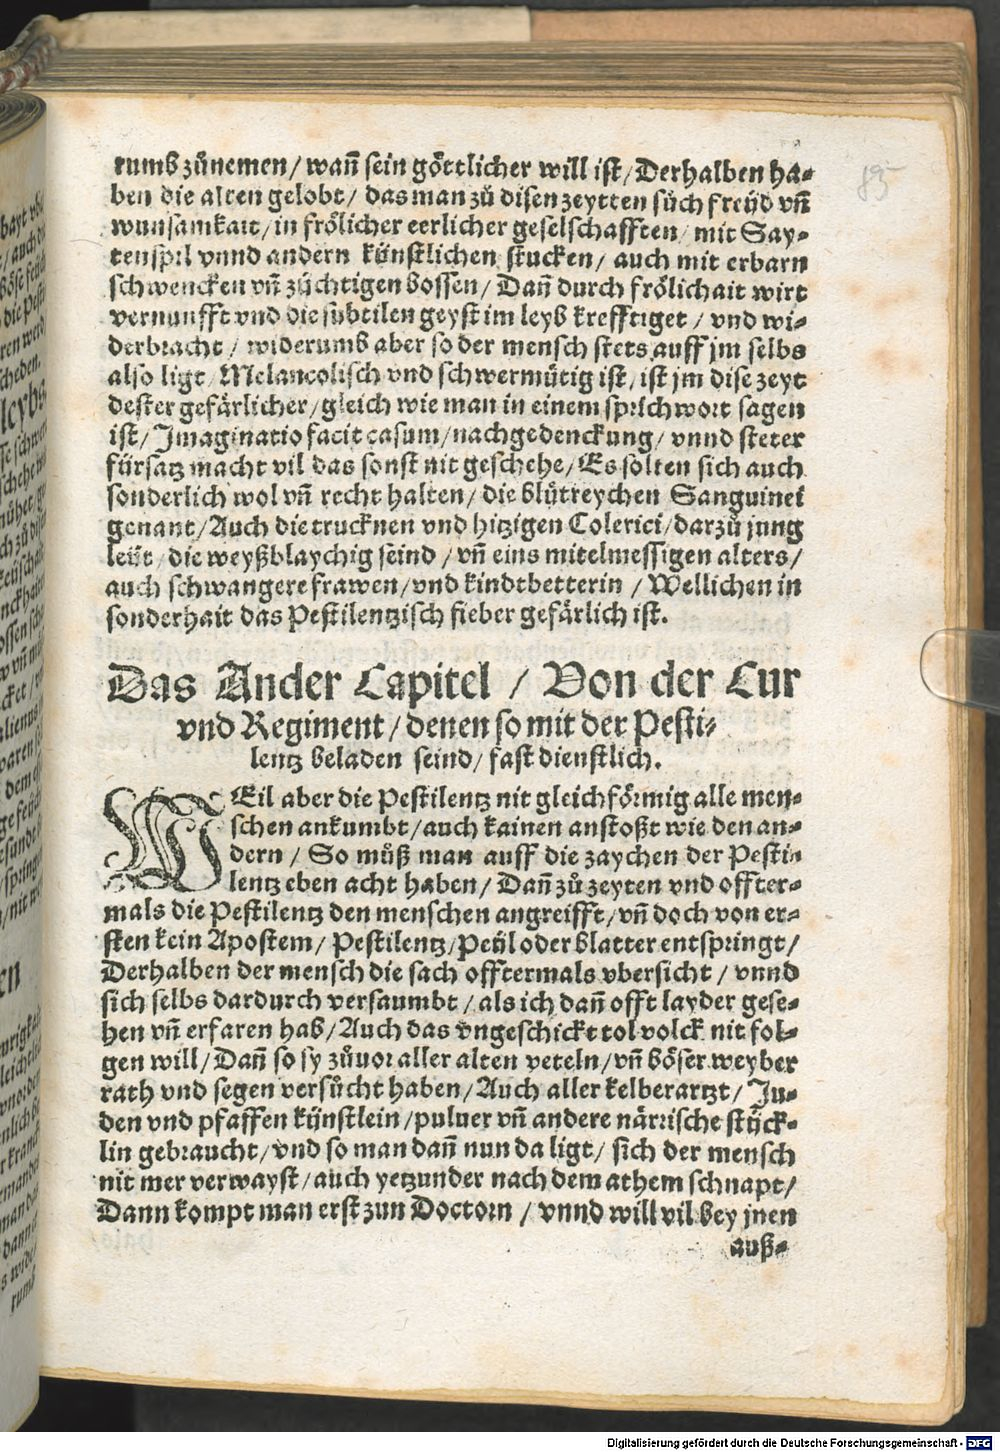 rumb zůnemen / wañ sein göttlicher will ist / Derhalben ha-
ben die alten gelobt / das man zů disen zeytten sůch freüd vñ
wunsamkait / in frölicher eerlicher geselschafften / mit Say-
tenspil vnnd andern künstlichen stucken / auch mit erbarn
schwencken vñ züchtigen bossen / Dañ durch frölichait wirt
vernunfft vnd die subtilen geyst im leyb krefftiget / vnd wi-
derbracht / widerumb aber so der mensch stets auff jm selbs
also ligt / Melancolisch vnd schwermütig ist / ist jm dise zeyt
dester gefärlicher / gleich wie man in einem sprichwort sagen
ist / Imaginatio facit casum / nachgedenckung / vnnd steter
fürsatz macht vil das sonst nit geschehe / Es solten sich auch
sonderlich wol vñ recht halten / die blůtreychen Sanguinei
genant / Auch die trucknen vnd hitzigen Colerici / darzů jung
leüt / die weyßblaychig seind / vñ eins mitelmessigen alters /
auch schwangere frawen / vnd kindtbetterin / Wellichen in
sonderhait das Pestilentzisch fieber gefärlich ist.
Das Ander Capitel / Von der Cur
vnd Regiment / denen so mit der Pesti-
lentz beladen seind / fast dienstlich.
WEil aber die Pestilentz nit gleichförmig alle men-
schen ankumbt / auch kainen anstoßt wie den an-
dern / So můß man auff die zaychen der Pesti-
lentz eben acht haben / Dañ zů zeyten vnd offter-
mals die Pestilentz den menschen angreifft / vñ doch von er-
sten kein Apostem / Pestilentz / Peül oder blatter entspringt /
Derhalben der mensch die sach offtermals vbersicht / vnnd
sich selbs dardurch versaumbt / als ich dañ offt layder gese-
hen vñ erfaren hab / Auch das vngeschickt tol volck nit fol-
gen will / Dañ so sy zůuor aller alten veteln / vñ böser weyber
rath vnd segen versůcht haben / Auch aller kelberartzt / Ju-
den vnd pfaffen künstlein / puluer vñ andere närrische stück-
lin gebraucht / vnd so man dañ nun da ligt / sich der mensch
nit mer verwayst / auch yetzunder nach dem athem schnapt /
Dann kompt man erst zun Doctorn / vnnd will vil bey jnen
auß-
85
Digitalisierung gefördert durch die Deutsche Forschungsgemeinschaft - DFG